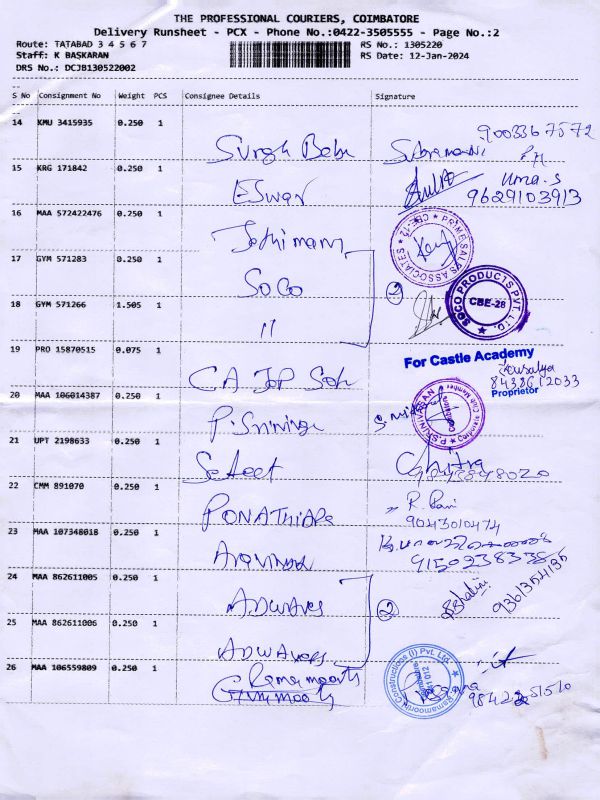 THE PROFESSIONAL COURIERS, COIMBATORE
Delivery Runsheet - PCX - Phone No.:0422-3505555 - Page No.:2
Route: TATABAD 3 4 5 6 7
RS No.: 1305220
Staff: K BASKARAN
RS Date: 12-Jan-2024
DRS No.: DCJB130522002
S No Consignment No Weight PCS Consignee Details Signature
14 KMU 3415935 0.250 1
9003367572
Suresh Babu
15 KRG 171842 0.250 1
Uma.S
Eswar
9629103913
16 MAA 572422476 0.250 1
PRIME SALES ASSOCIATES CBE-12
Jothimani
17 GYM 571283 0.250 1
SoCo
2
SOCO PRODUCTS PVT. LTD.
CBE-28
18 GYM 571266 1.505 1
11
19 PRO 15870515 0.075 1
For Castle Academy
Kousalya
8438612033
Proprietor
CA JOP
20 MAA 106014387 0.250 1
P.SRINIVASAN
P. Srinivasa
21 UPT 2198633 0.250 1
Chitra
Select
22 CMM 891070 0.250 1
R. Rani
PONATHIARA
9043010474
23 MAA 107348018 0.250 1
Aravindh
24 MAA 862611005 0.250 1
9361354195
ADWAVES
2
25 MAA 862611006 0.250 1
ADWAVES
26 MAA 106559809 0.250 1
Ramamoorthy
Ramamoorthi Constructions (I) Pvt. Ltd.